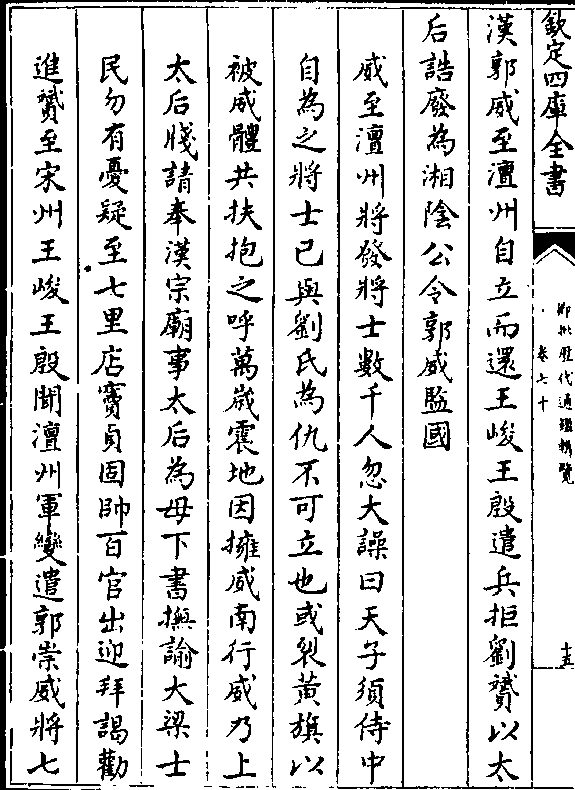 欽定四庫全書
御批歷代通鑑輯覽
卷七十
十五
漢郭威至澶州自立而還王峻王殷遣兵拒劉贇以太
后誥廢為湘陰公令郭威監國
威至澶州將發將士數千人忽大譟曰天子須侍中
自為之將士已與劉氏為仇不可立也或裂黃旗以
被威體共扶抱之呼萬歲震地因擁威南行威乃上
太后牋請奉漢宗廟事太后為母下書撫諭大梁士
民勿有憂疑至七里店竇貞固帥百官出迎拜謁勸
進贇至宋州王峻王殷聞澶州軍變遣郭崇威將七